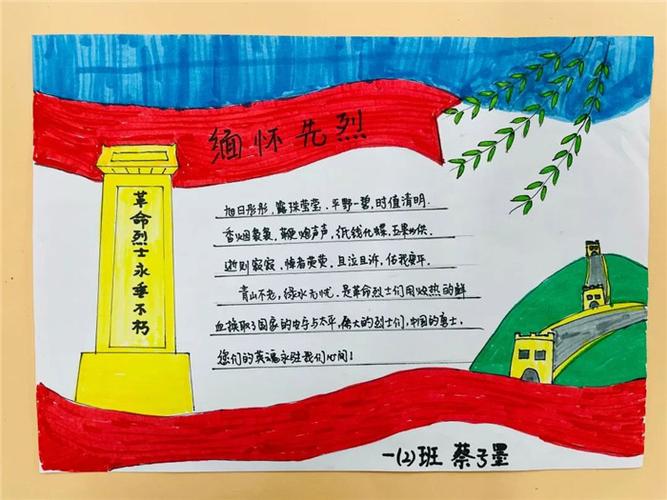 缅怀先烈
革命烈士永垂不朽
旭日彤彤，露珠莹莹，平野一碧，时值清明.
香烟袅袅，鞭炮声声，纸钱化蝶，五果必供.
逝则寂寂，悼者茕茕，且泣且诉，佑我康平.
青山不老，绿水无忧，是革命烈士们用灼热的鲜
血换取了国家的安宁与太平，伟大的烈士们，中国的勇士，
您们的英魂永驻我们心间！
一(2)班 蔡子墨